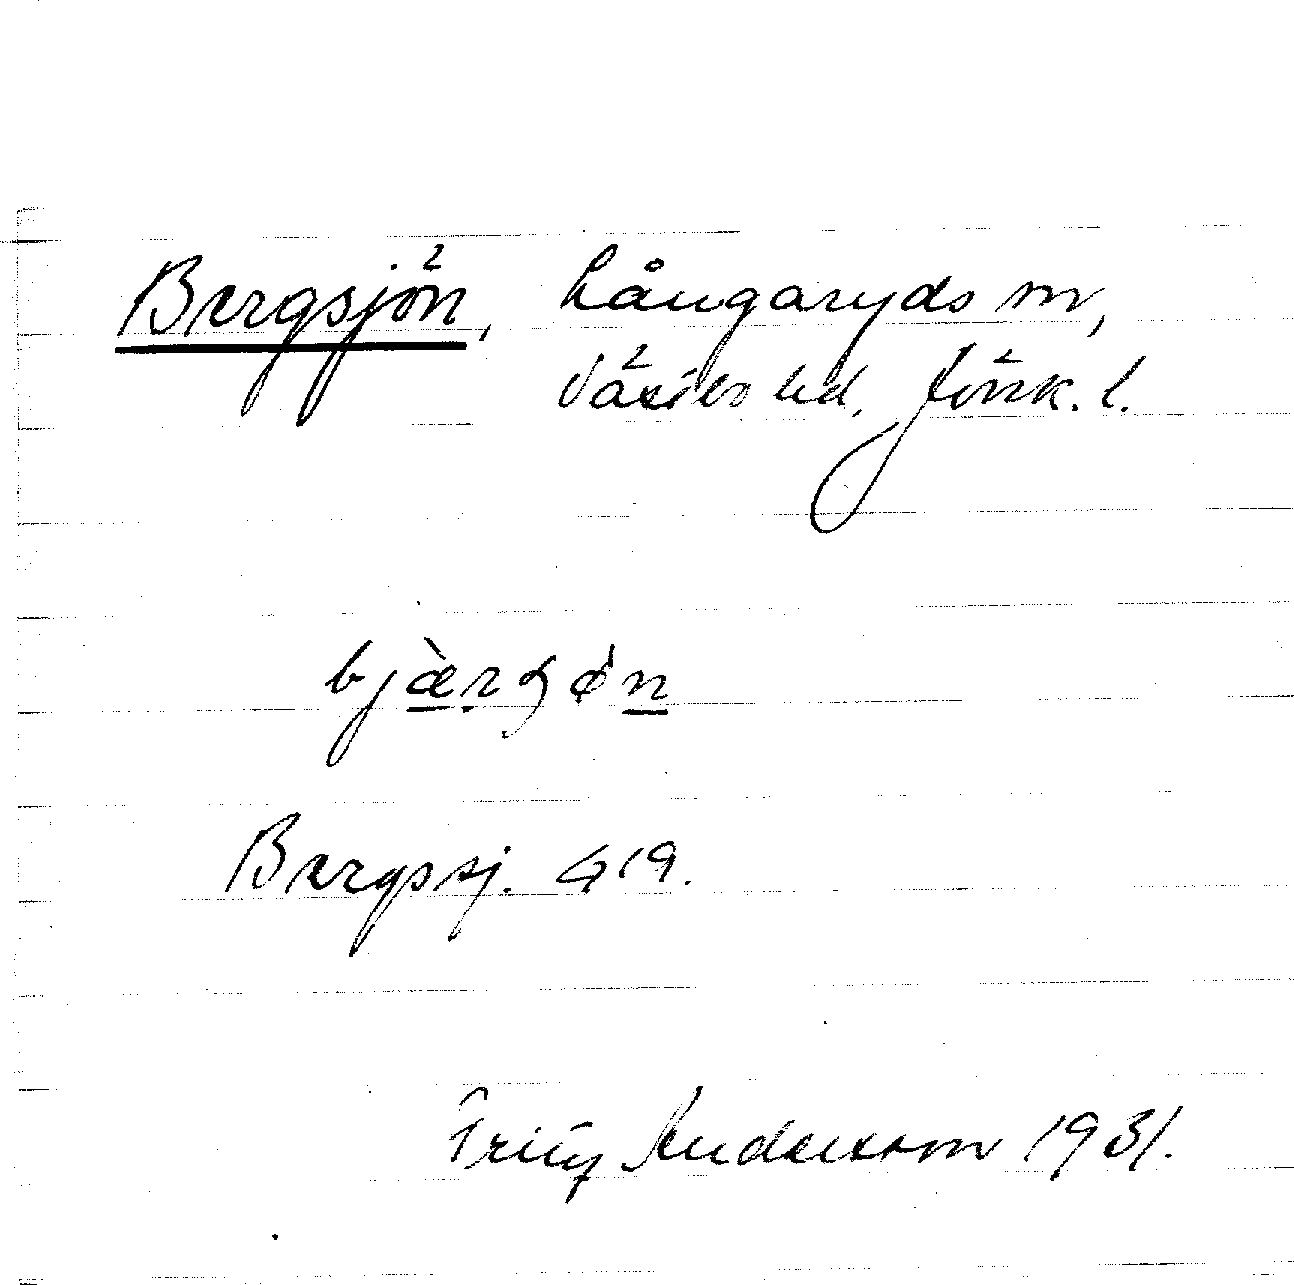 Bergsjön, Långaryds sn,
Västbo hd, Jönk. l.
Bergssj. G19.
Fritz Andersson 1931.